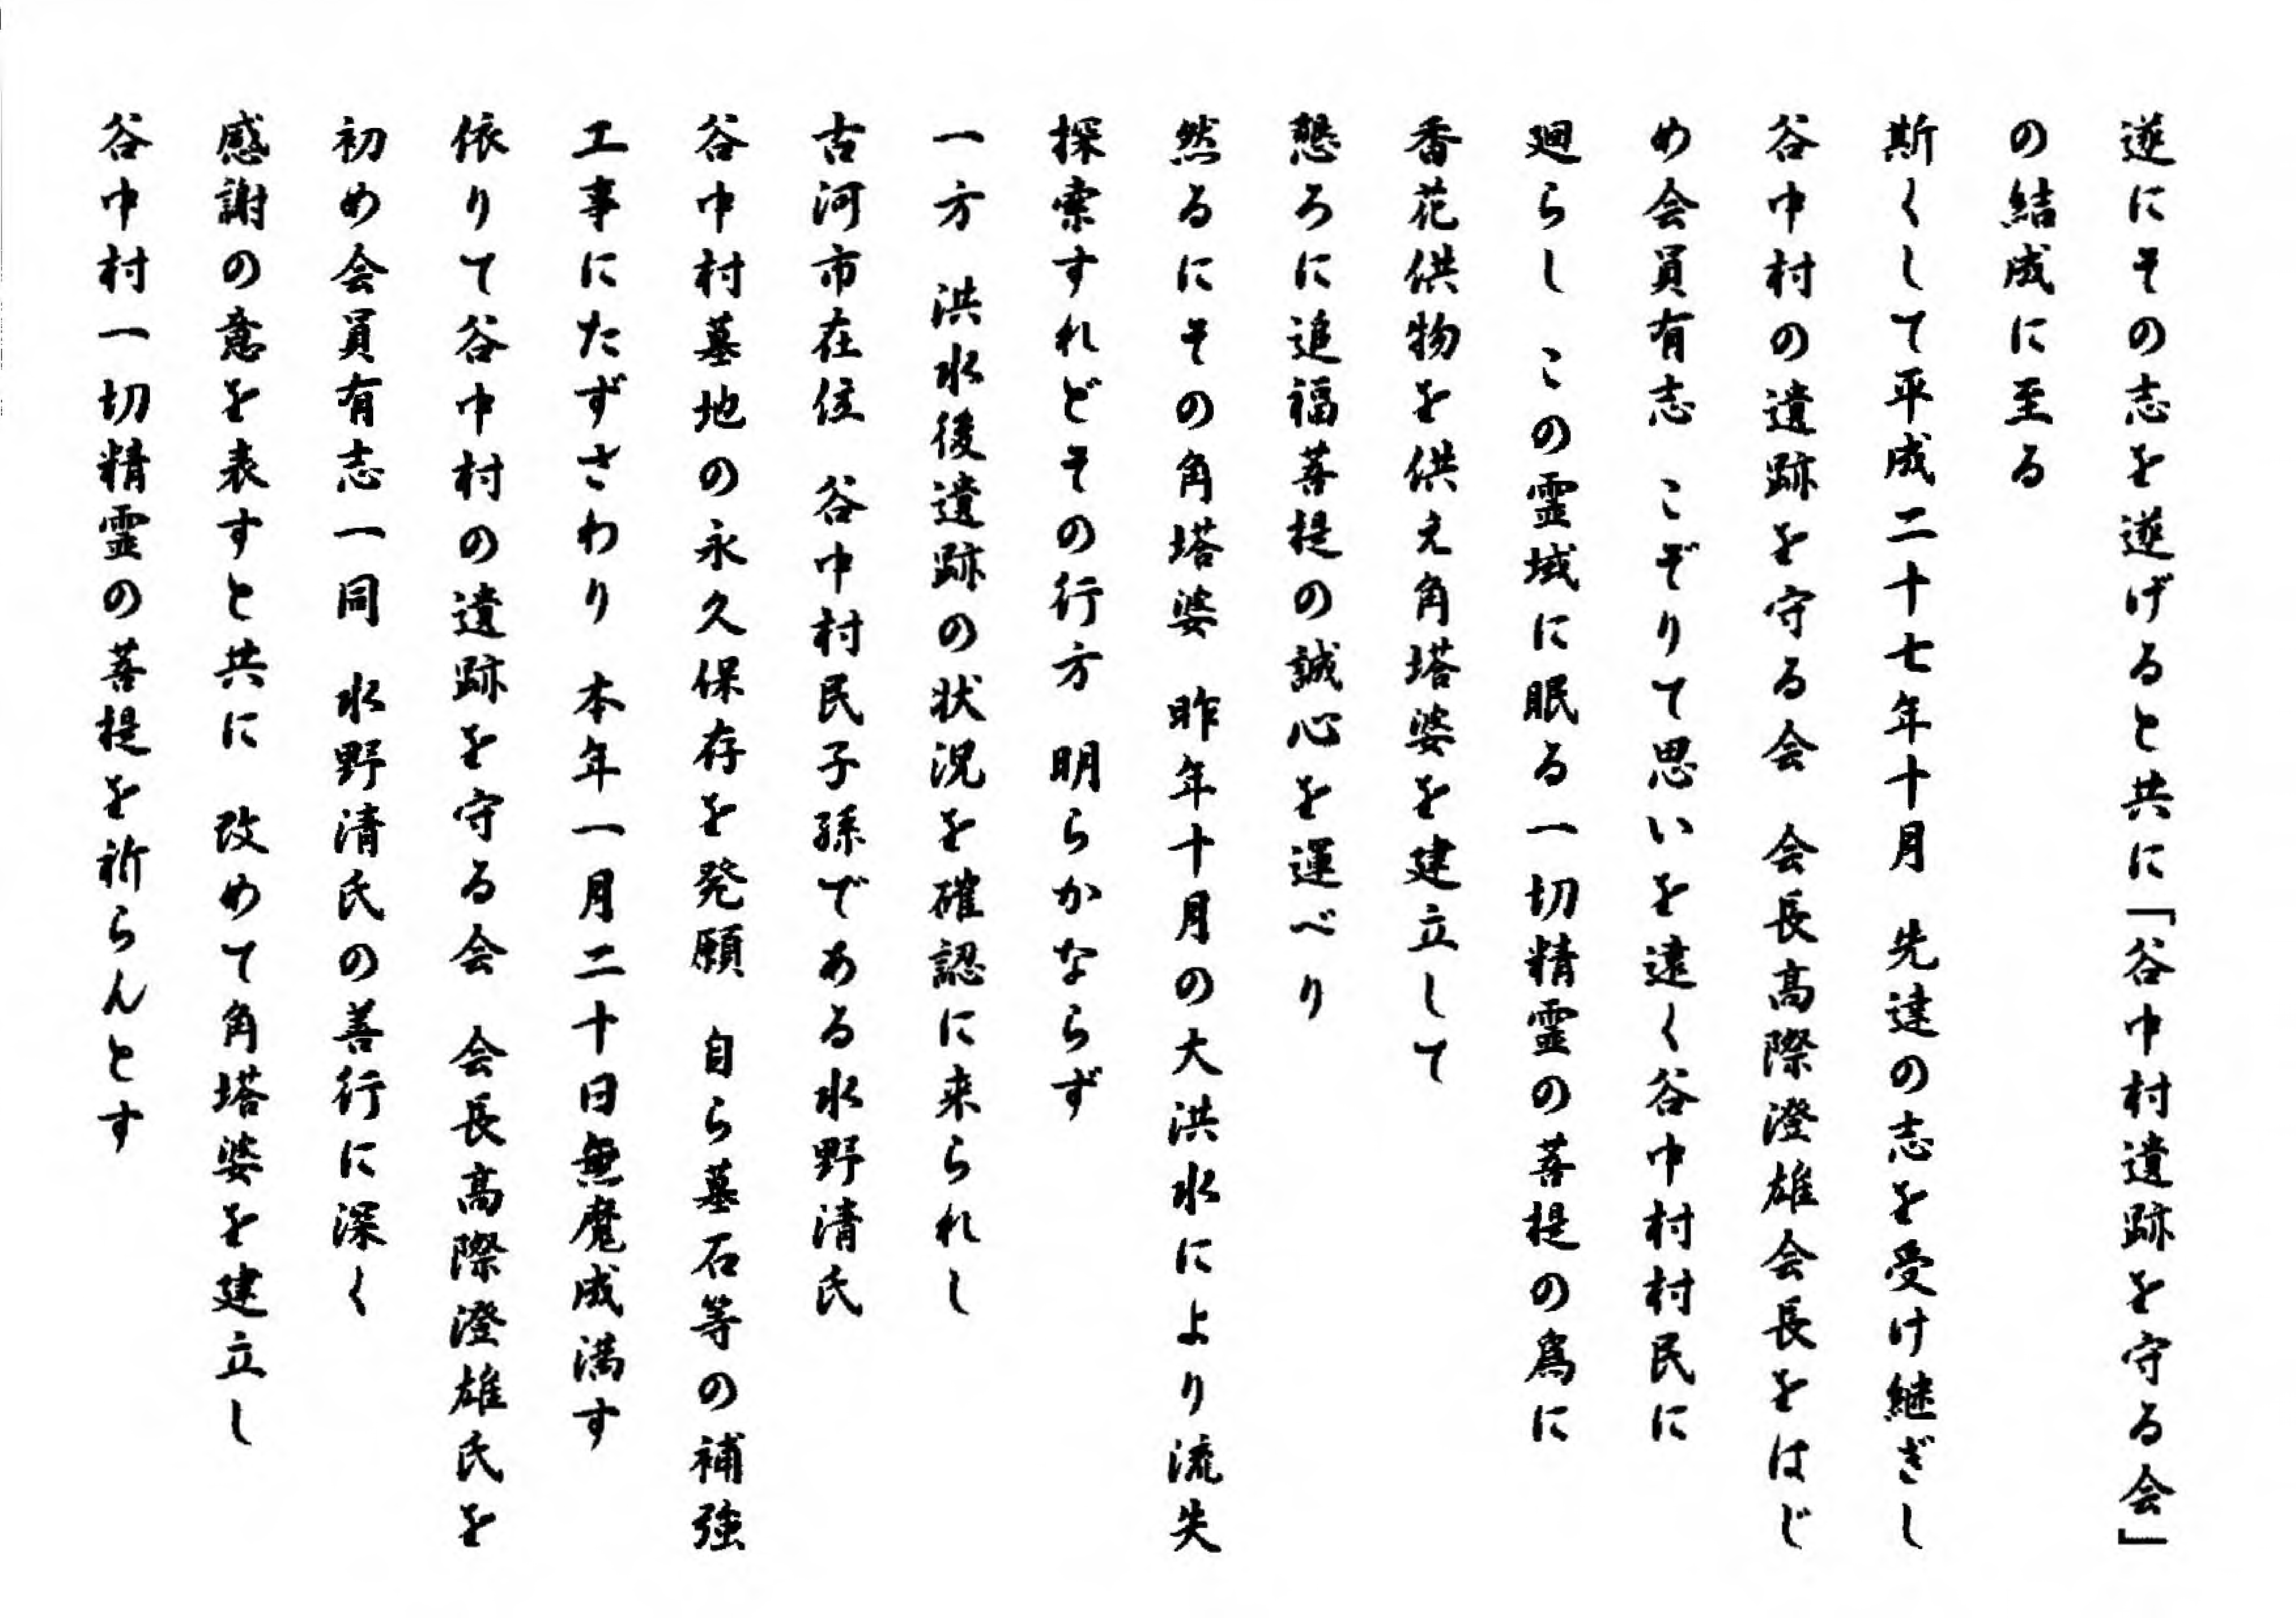 遂にその志を遂げると共に「谷中村遺跡を守る会」
の結成に至る
斯くして平成二十七年十月　先達の志を受け継ぎし
谷中村の遺跡を守る会　会長高際澄雄会長をはじ
め会員有志　こぞりて思いを遠く谷中村村民に
廻らし　この霊域に眠る一切精霊の菩提の為に
香花供物を供え角塔婆を建立して
懇ろに追福菩提の誠心を運べり
然るにその角塔婆　昨年十月の大洪水により流失
探索すれどその行方　明らかならず
一方　洪水後遺跡の状況を確認に来られし
古河市在住　谷中村民子孫である水野清氏
谷中村墓地の永久保存を発願　自ら墓石等の補強
工事にたずさわり　本年一月二十日無魔成満す
依りて谷中村の遺跡を守る会　会長高際澄雄氏を
初め会員有志一同　水野清氏の善行に深く
感謝の意を表すと共に　改めて角塔婆を建立し
谷中村一切精霊の菩提を祈らんとす